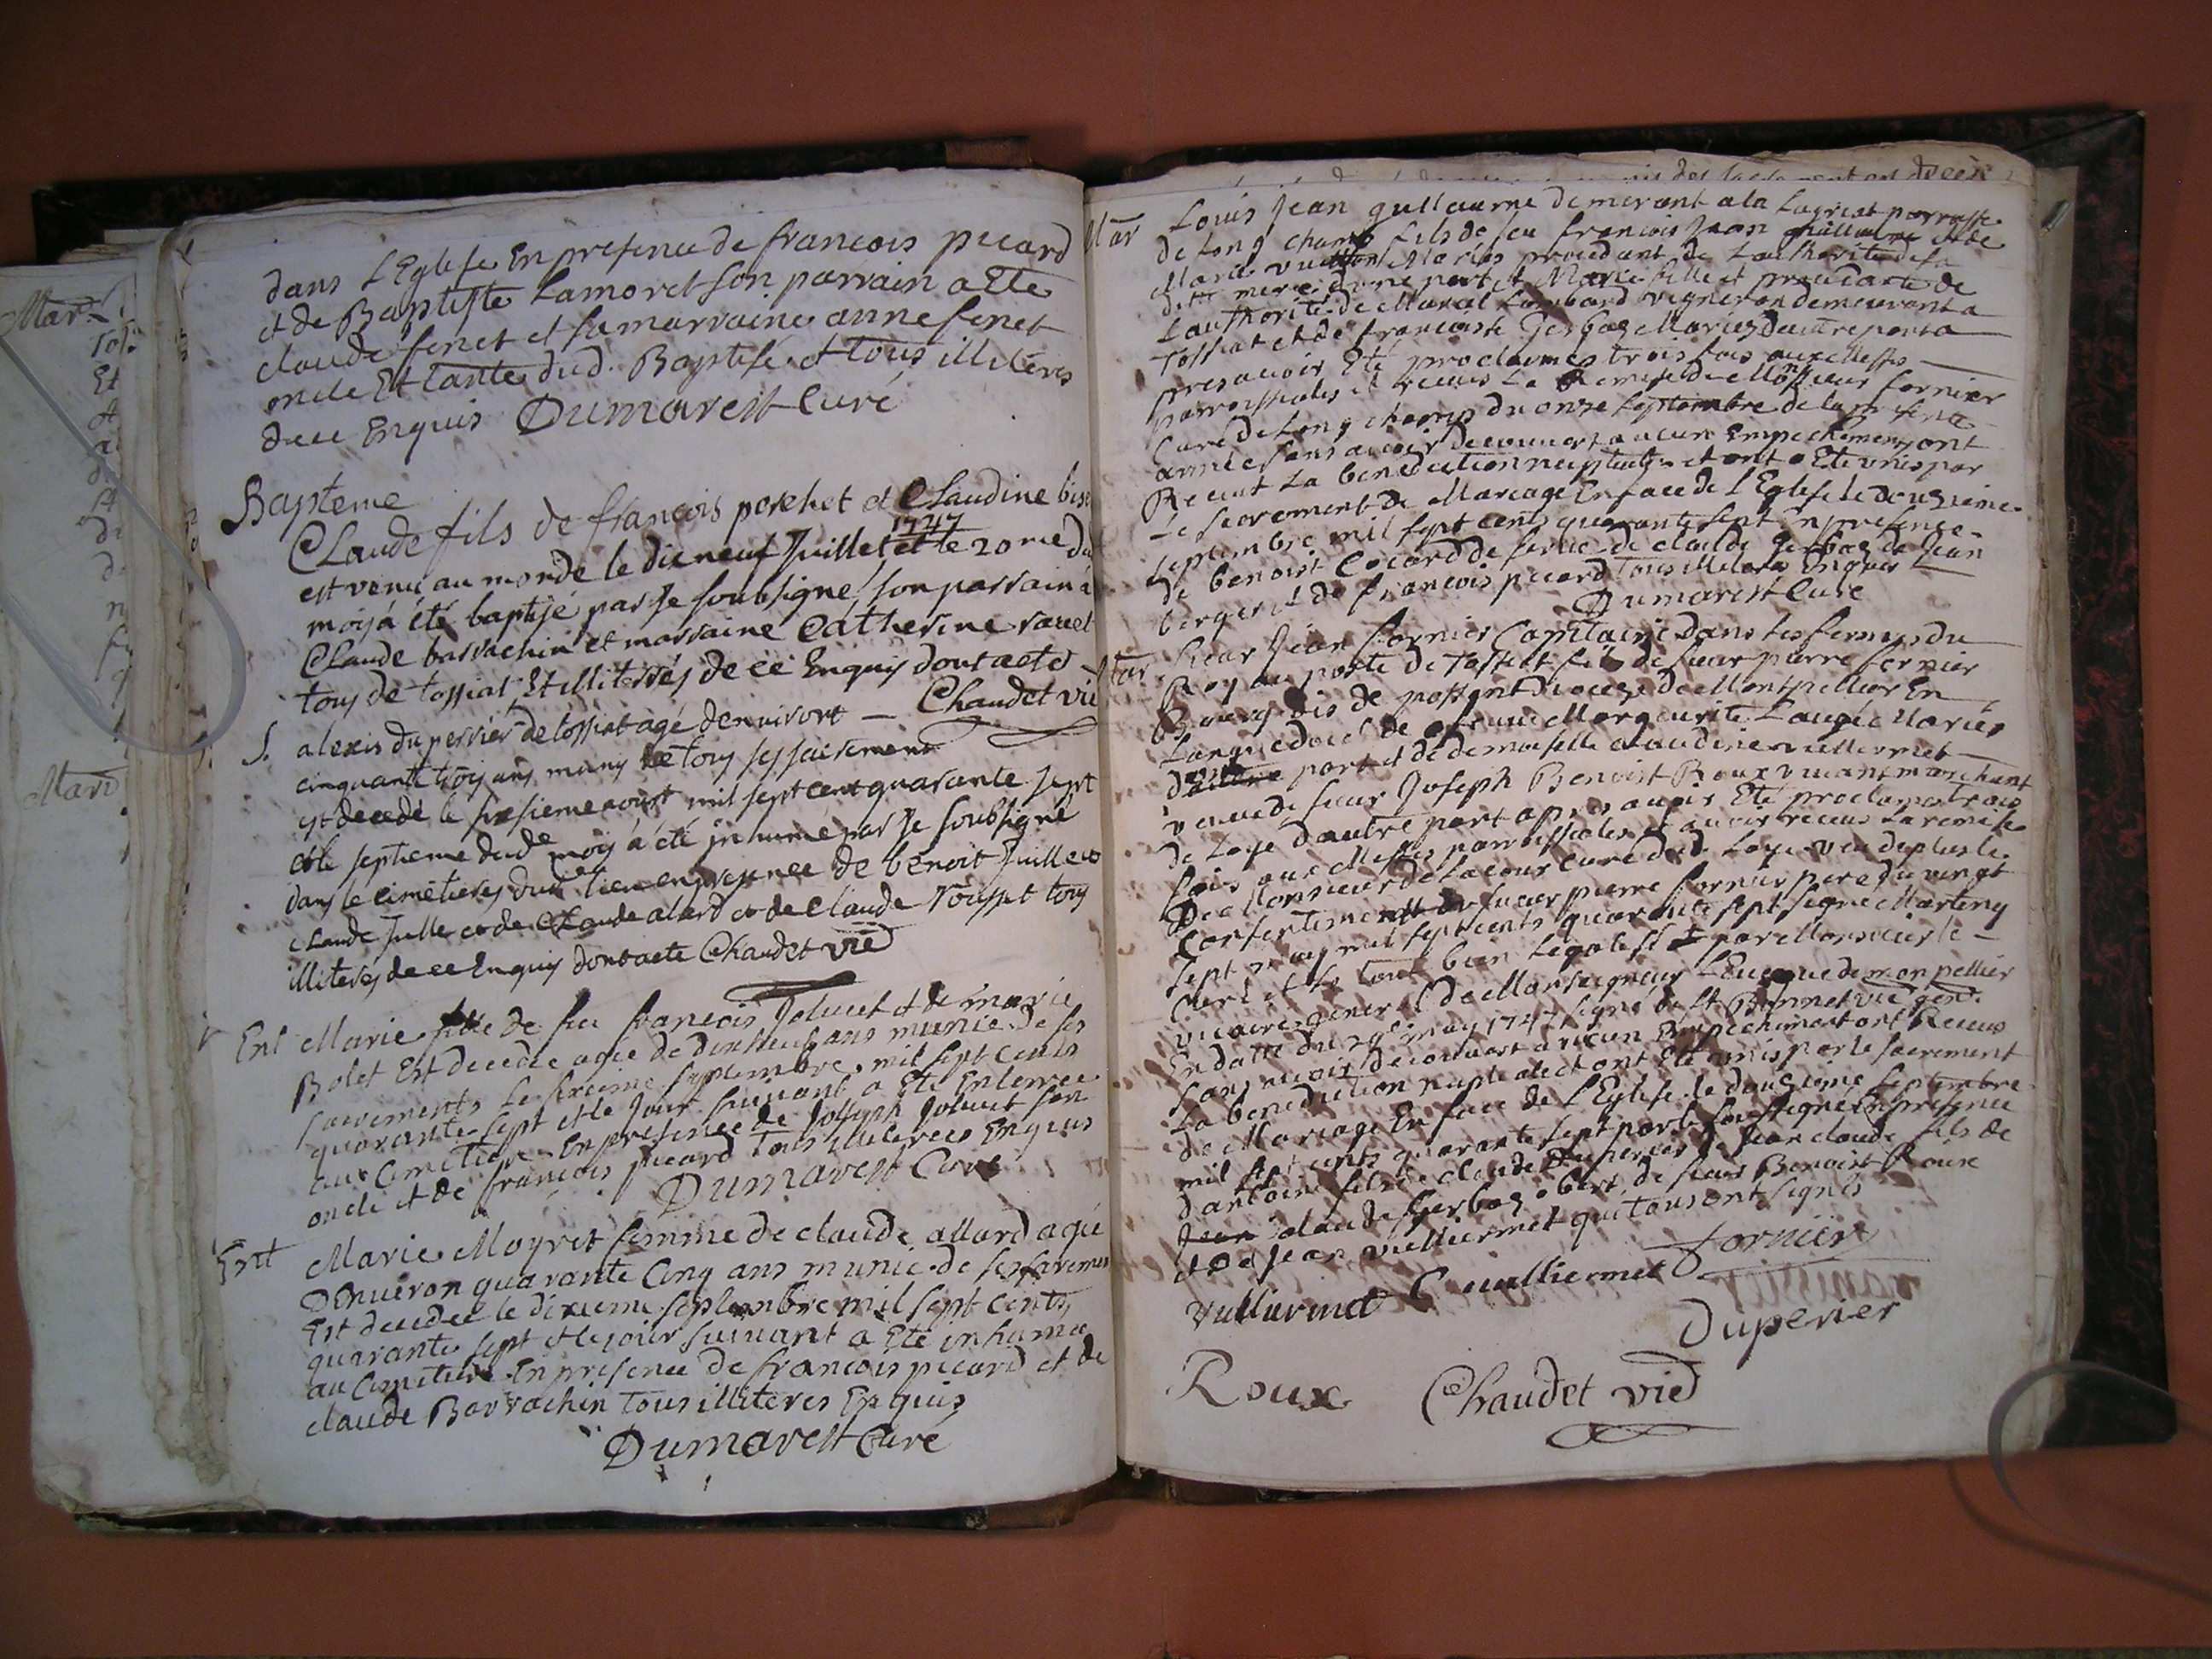 dans L'Eglise En presence de francois picard
et de Baptiste Lamoret son parrain a Ete
claude fenet et sa marraine anne fenet
oncle Et tante dud. Baptisé et tous illiteres
dece Enquis Dumarest Curé
Bapteme
Claude fils de francois perchet et Claudine bise
1747
est venu au monde le dieneuf Juillet et le 20me du
mois á été baptisé par je soubsigné son parrain á
Claude barrachin et marraine Catherine ravet
tous de tossiat Et illiterés de ce Enquis dont acte
Chaudet vic
S. alexis du perrier de tossiat agé denvisort
cinquante trois ans muny de tous ses sacremens
est decedé le sixsieme aoust mil sept cent quarante sept
et le septieme dud. mois á été jnhumé par je soubsigné
dans le cimetieres dud. lieu en presence de benoit Juillero
claude Julle et de Claude alard et de Claude rousset tous
illiterés de ce Enquis dont acte Chaudet vic
Ent Marie fille de feu francois Joluet et de marie
Bolet Est decedée agee de dixneuf ans munie de ses
sacrements le sixieme septembre mil sept cents
quarante sept et le jour suivant a Ete Enterrée
au Cimetiere En presence de Joseph Joluet son
oncle et de francois picard tous illiterees Enquis
Dumarest Curé
Ent Marie Moyret femme de claude allard agée
Denuiron quarante Cinq ans munie de ses sacremens
Est decedée le dixieme septembre mil sept cents
quarante sept et le jour suivant a Eté inhumée
au Cimetiere En presence de francois picard et de
claude Barrachin tous illiteres Enquis
Dumarest Curé
Mar Louis Jean guillaume demeurant a la parroisse
de Long champ fils de feu francois Jean guillaume et de
Marie Mariés procedant de Lauthorité de sa
ditte mere d'une part et Marie fille et procedante de
Lauthorité de Marcel Lombard vigneron demeurant a
Tossiat et de francoise Gerbaz Mariez d'autre part a
pres avoir Eté proclamés trois fois aux Messes
parroissiales et receus La Remise de Monsieur fornier
Curé de Long champ du onze septembre de la presente
année sans avoir decouvert aucun Empechement ont
Receut La benediction nuptiale et ont Ete unis par
Le sacrement de Mariage En face de L'Eglise le douzieme
septembre mil sept cents quarante sept En presence
de benoist Cocard de de claude Gerbaz de Jean
berger et de francois picard tous illiteres Enquis
Dumarest Curé
Mar Sieur Jean fornier Capitaine dans les fermes du
Roy au poste de Tossiat fils de sieur pierre fornier
Bourgeois de diocese de Montpellier En
Languedoc et de Marguerite Laugée Mariés
d'une part et de demoiselle claudine vuilliermet
veuve de sieur Joseph Benoist Roux vivant marchant
de Loye d'autre part apres avoir Eté proclamés trois
fois aux Messes parroissiales et avoir receus La remise
De Monsieur de Lacour curé dud. Loye veu de plus le
Consentement du sieur pierre fornier pere du vingt
sept may mil sept cents quarante sept signé Marting
Clerc et Le tout bien Legalisé par Monsieur le
vicaire general de Monseigneur L'Eveque de monpellier
En datte du 29e may 1747 signé de St Bonnet vic gen.
sans avoir decouvert aucun Empechement ont Receus
La benediction nuptiale et ont Eté unis par le sacrement
de Mariage En face de L'Eglise le douzieme septembre
mil sept cents quarante sept par le soussigné En presence
d'antoine fils de claude Duperier de Jean claude fils de
Jean claude Gerbaz de sieur Benoist Roux
et de Jean vuilliermet qui tous ont signés
vulliermet C vuilliermet fornier
Duperier
Roux Chaudet vic